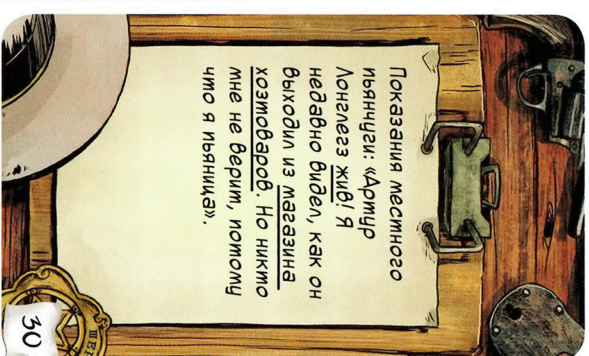 Показания местного
пьянчуги: «Артур
Лонглегз жив! Я
недавно видел, как он
выходил из магазина
хозтоваров. Но никто
мне не верит, потому
что я пьяница».
30